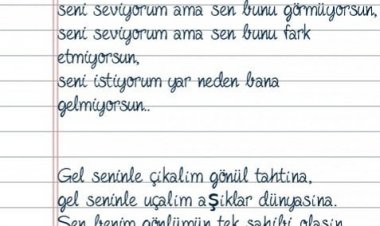 seni seviyorum ama sen bunu görmüyorsun,
seni seviyorum ama sen bunu fark
etmiyorsun,
seni istiyorum yar neden bana
gelmiyorsun..
Gel seninle çikalim gönül tahtina,
gel seninle uçalim aşiklar dünyasina.
Sen benim gönlümün tek sahibi olasin